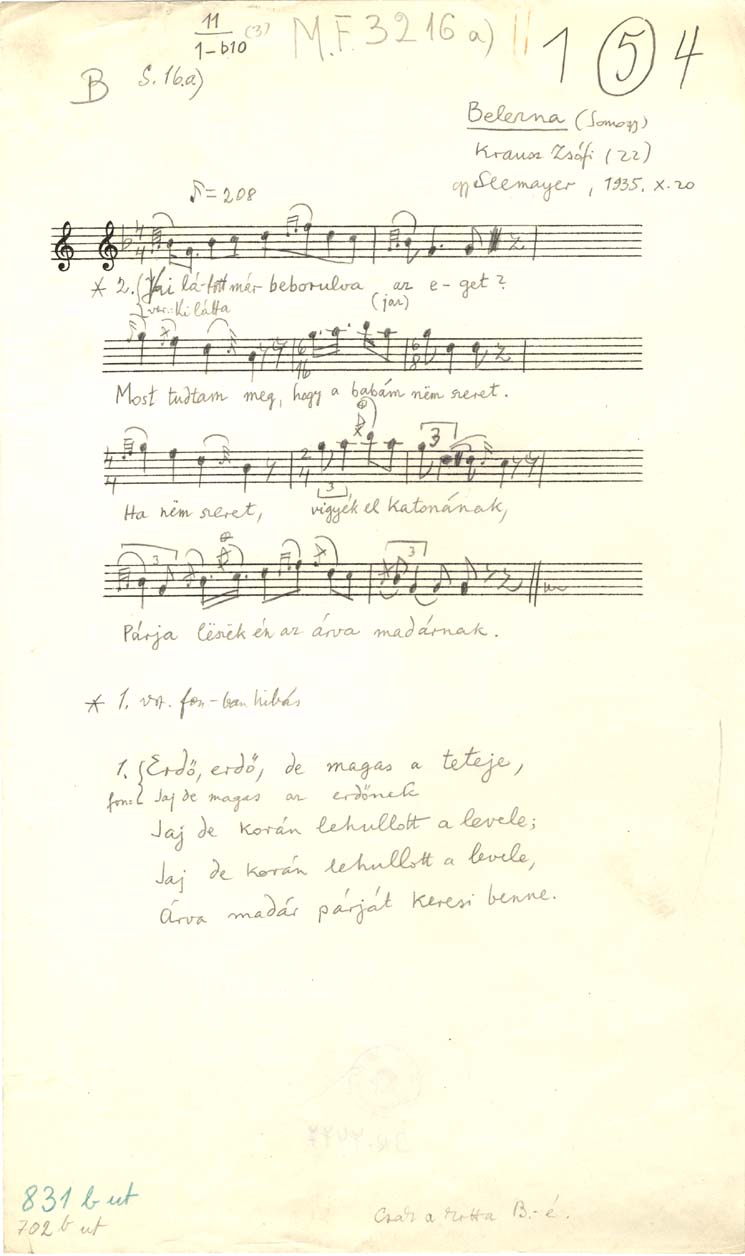 11
1-b10
(3)
M.F. 3216 a)
1 5 4
B S. 16.a)
Belezna (Somogy)
Krausz Zsófi (22)
Seemayer, 1935. X. 20
♪=208
* 2. Ki lá-tott már beborulva az e-get?
var.: Ki látta
Most tudtam meg, hogy a babám nëm szeret.
Ha nëm szeret, vigyék el katonának,
Párja lëszëk én az árva madárnak.
* 1. vsz. fon-ban hibás
1. Erdő, erdő, de magas a teteje,
fon: Jaj de magas az erdőnek
Jaj de korán lehullott a levele;
Jaj de korán lehullott a levele,
Árva madár párját keresi benne.
831 b ut
702 b ut
Csak a kotta B.-é.